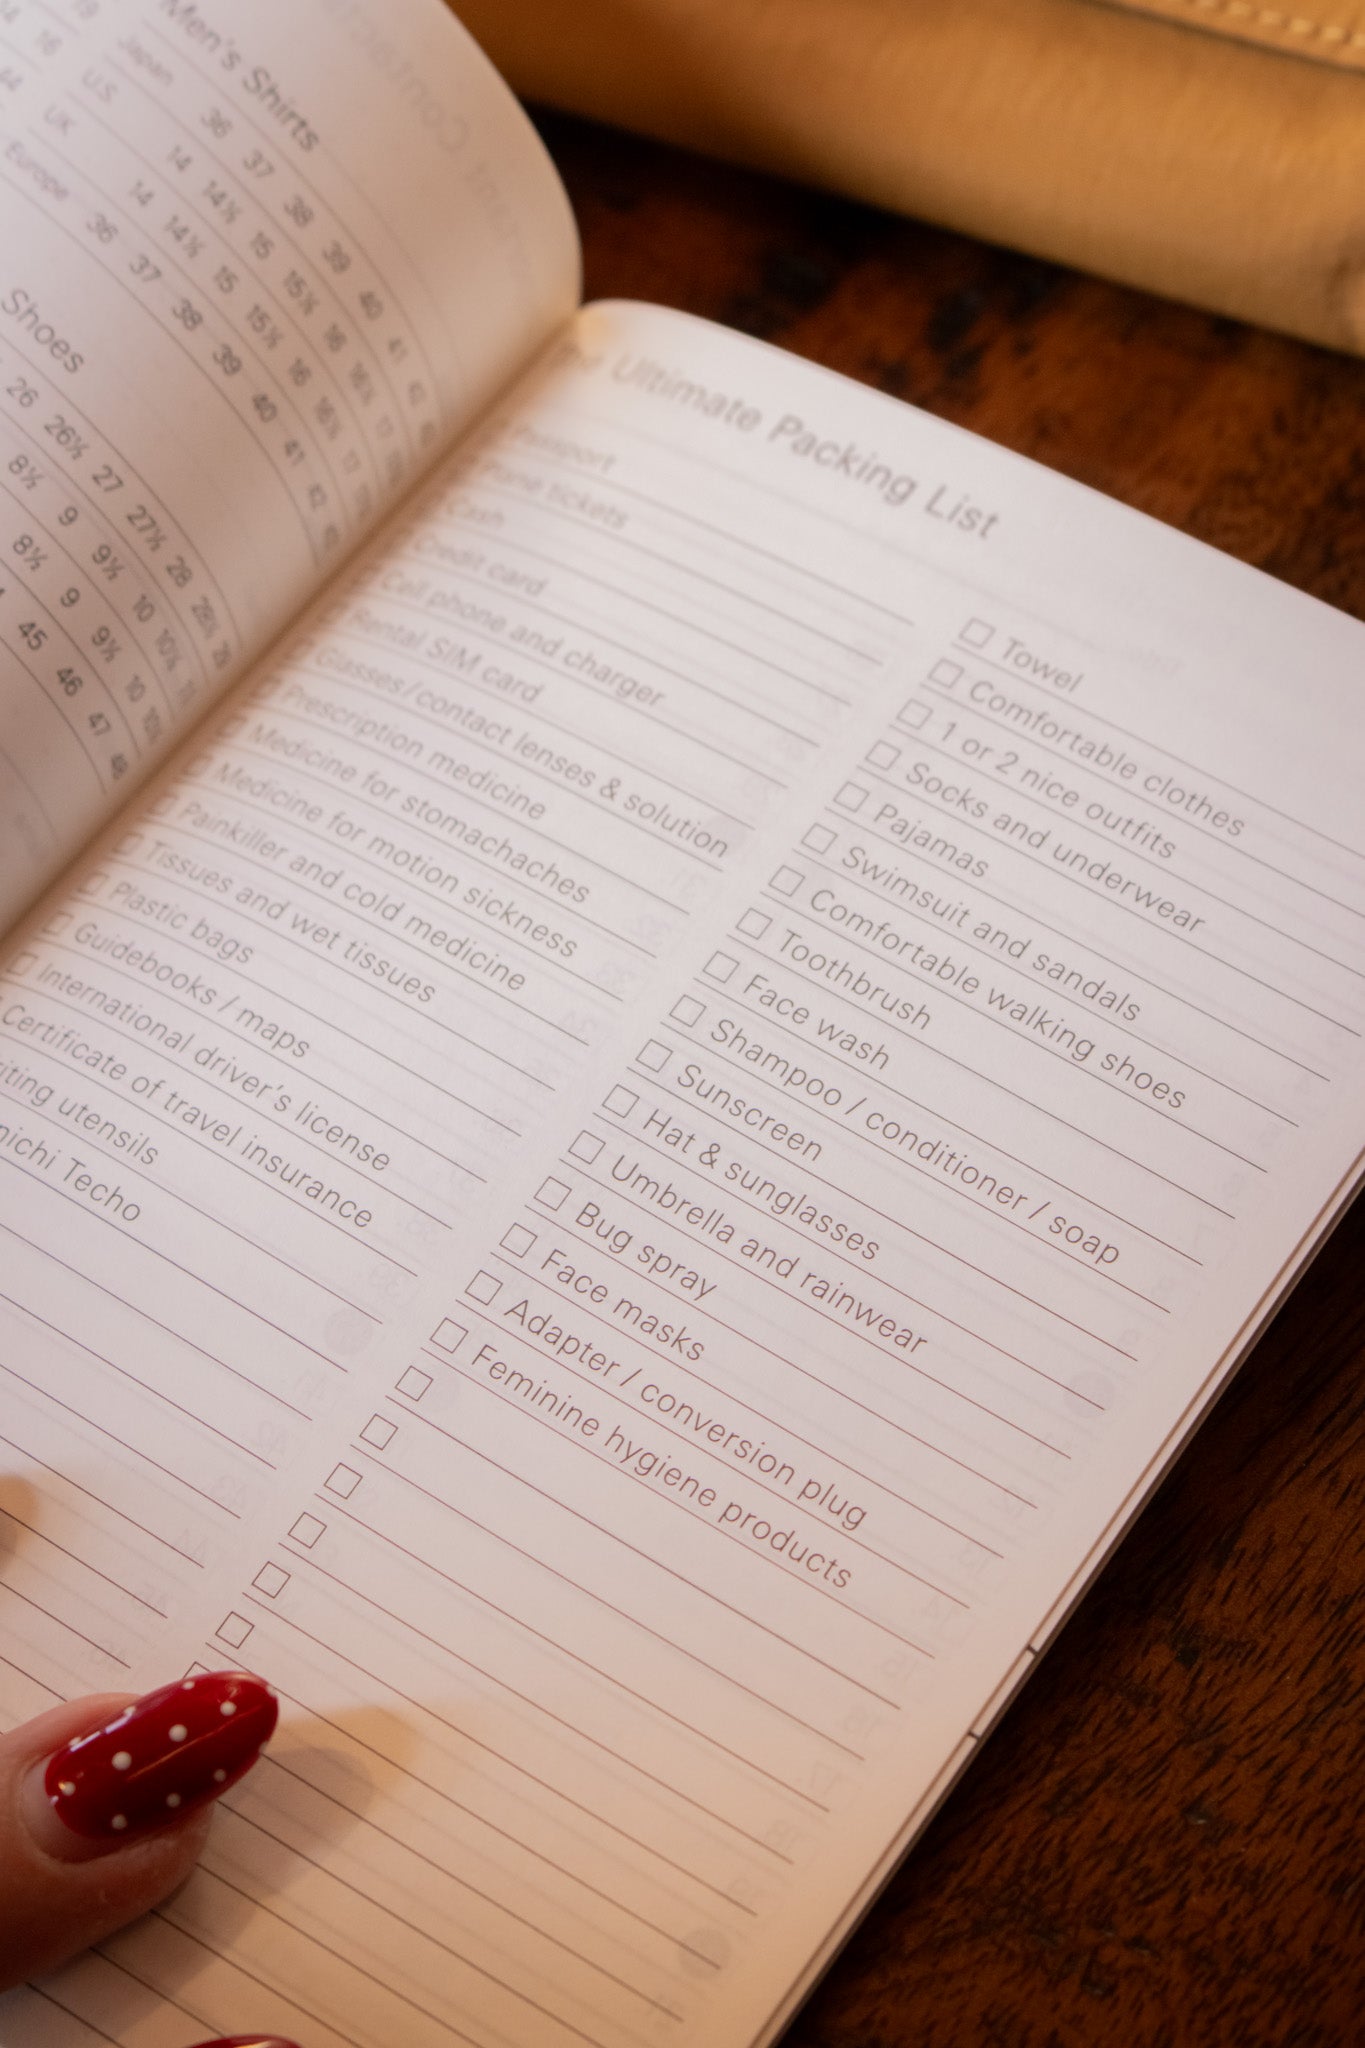 Men's Shirts
Japan 36 37 38 39 40 41 42
U.S. 14 14½ 15 15½ 16 16½ 17
UK 14 14½ 15 15½ 16 16½ 17
Europe 36 37 38 39 40 41 42
Shoes
26 26½ 27 27½ 28 28½ 29
8½ 9 9½ 10 10½ 11
8½ 9 9½ 10 10½
45 46 47 48
Ultimate Packing List
Passport
Plane tickets
Cash
Credit card
Cell phone and charger
Rental SIM card
Glasses / contact lenses & solution
Prescription medicine
Medicine for stomachaches
Medicine for motion sickness
Painkiller and cold medicine
Tissues and wet tissues
Plastic bags
Guidebooks / maps
International driver's license
Certificate of travel insurance
utensils
Techo
Towel
Comfortable clothes
1 or 2 nice outfits
Socks and underwear
Pajamas
Swimsuit and sandals
Comfortable walking shoes
Toothbrush
Face wash
Shampoo / conditioner / soap
Sunscreen
Hat & sunglasses
Umbrella and rainwear
Bug spray
Face masks
Adapter / conversion plug
Feminine hygiene products